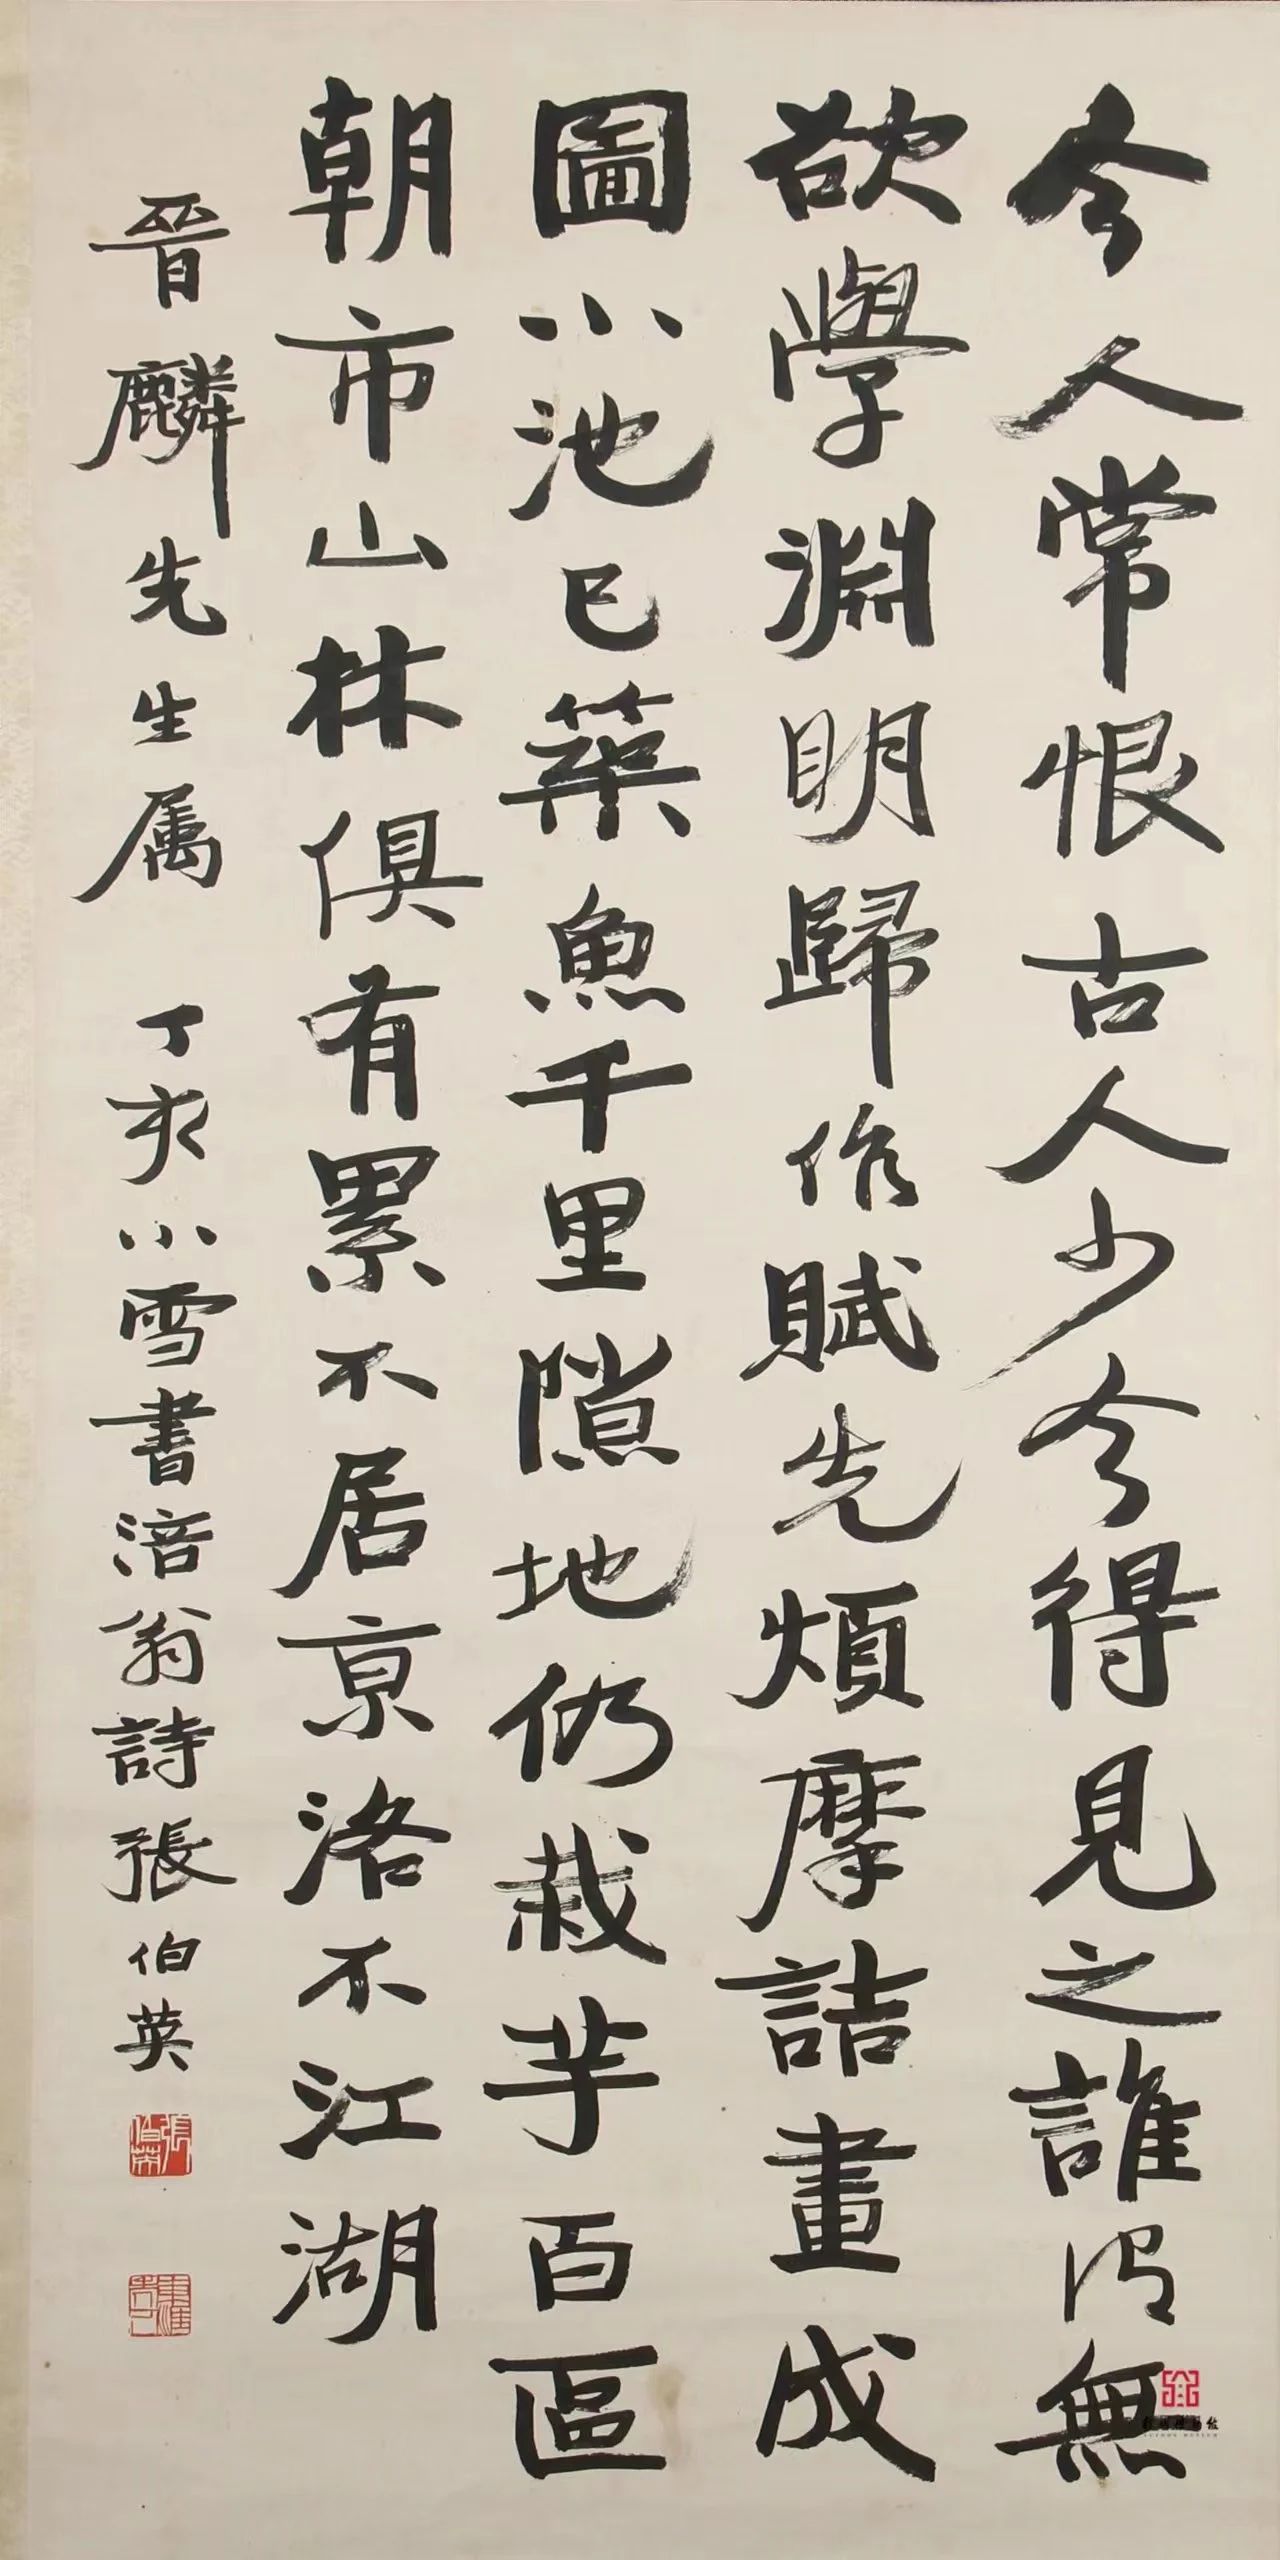 今人常恨古人少今得見之誰謂無
欲學淵明歸作賦先煩摩詰畫成
圖小池已築魚千里隙地仍栽芋百區
朝市山林俱有累不居京洛不江湖
晉麟先生属 丁亥小雪書涪翁詩張伯英
張伯英